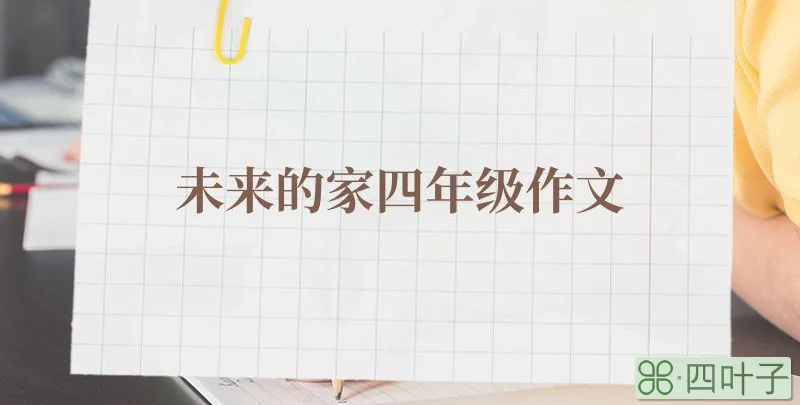 未来的家四年级作文
四叶子